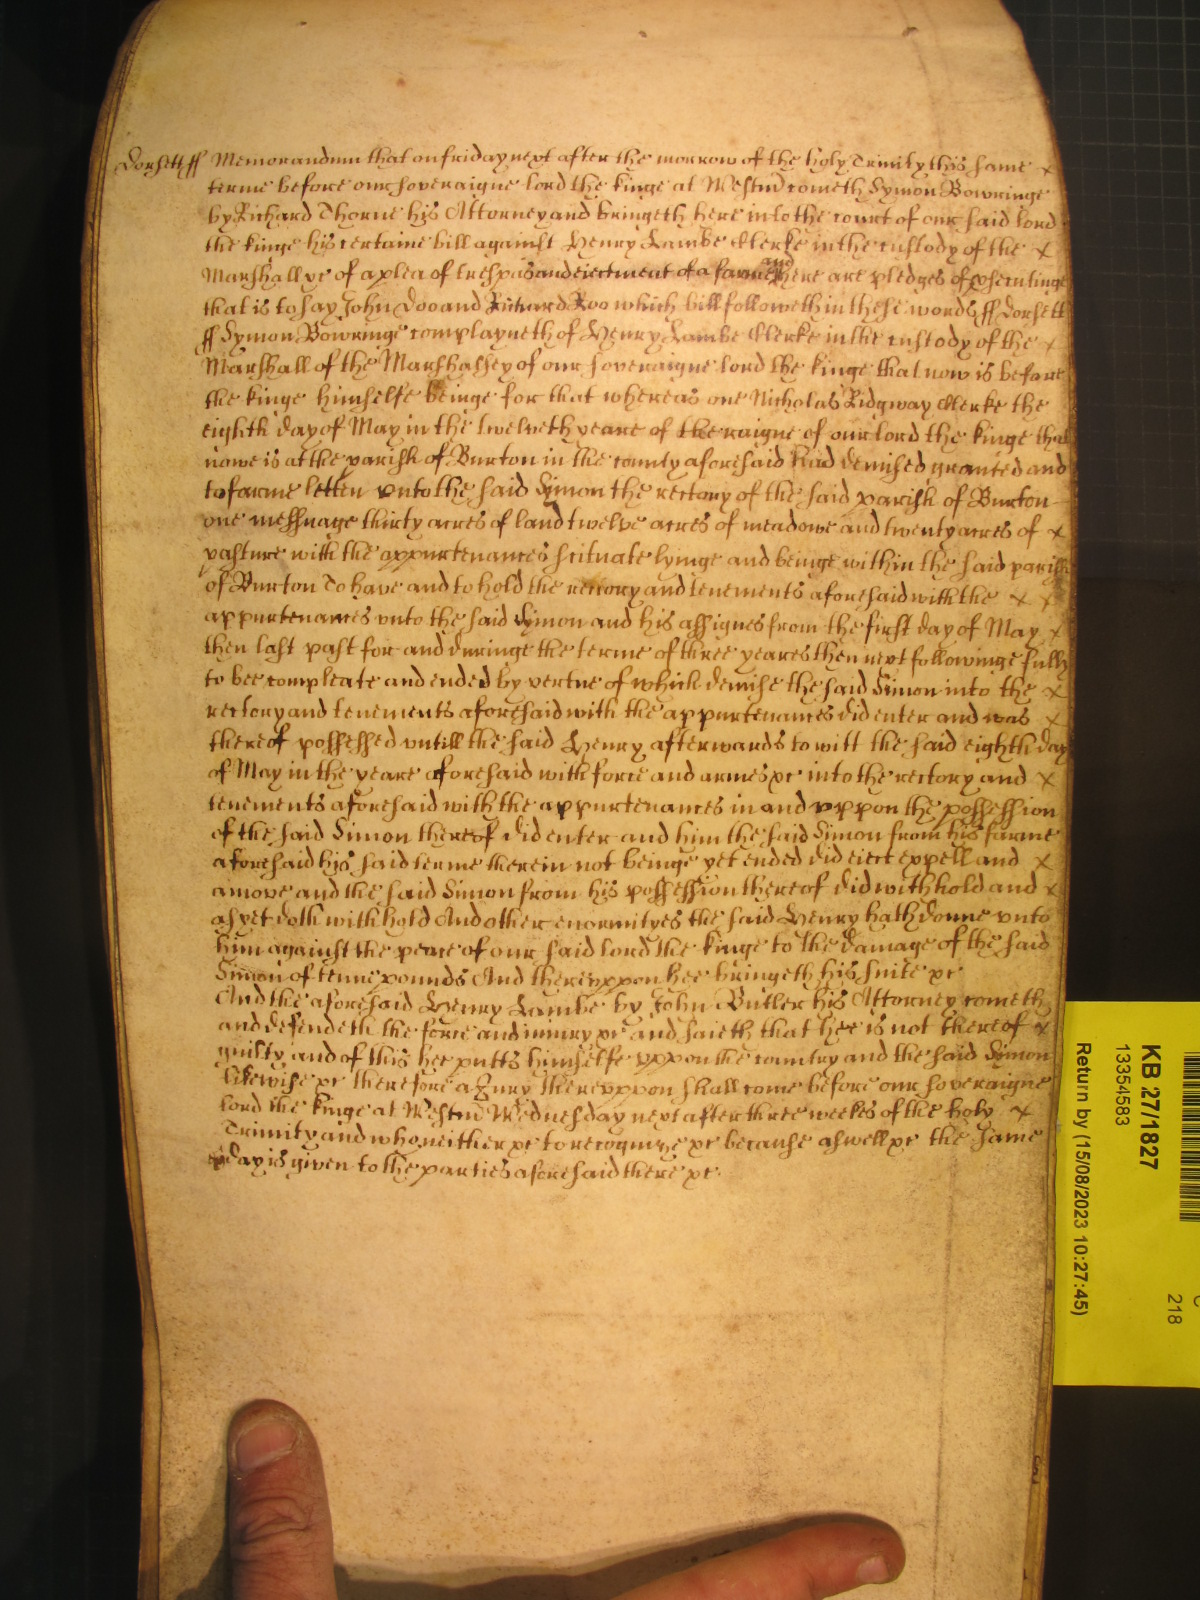 Dorsett ff Memorandum that on friday next after the morrow of the holy Trinity this same x
terme before our soveraigne lord the kinge at Westm cometh Symon Bowringe
by Richard Thorne his Attorney and bringeth here into the court of our said lord
the kinge his certaine bill against Henry Lambe Clerke in the custody of the x
Marshall &c of a plea of trespas and eiectment of a farme and there are pledges of psecutinge
that is to say John Doo and Richard Roo which bill followeth in these words ff Dorsett
ff Symon Bowringe complayneth of Henry Lambe Clerke in the custody of the x
Marshall of the Marshalsey of our soveraigne lord the kinge that now is before
the kinge himselfe beinge for that whereas one Nicholas Ridgway Clerke the
eighth day of May in the twelveth yeare of the raigne of our lord the kinge that
nowe is at the parish of Burton in the county aforesaid had demised granted and
to farme letten vnto the said Simon the rectory of the said parish of Burton
one messuage thirty acres of land twelve acres of meadowe and twenty acres of x
pasture with the appurtenances scituate lyinge and beinge within the said parish
of Burton To have and to hold the rectory and tenements aforesaid with the x x
appurtenances vnto the said Symon and his assignes from the first day of May x
then last past for and duringe the terme of three yeares then next followinge fully
to bee compleate and ended by vertue of which demise the said Simon into the x
rectory and tenements aforesaid with the appurtenances did enter and was x
thereof possessed vntill the said Henry afterwards to witt the said eighth day
of May in the yeare aforesaid with force and armes &c into the rectory and x
tenements aforesaid with the appurtenances in and vppon the possession
of the said Simon thereof did enter and him the said Simon from his farme
aforesaid his said terme therein not beinge yet ended did eiect expell and x
amove and the said Simon from his possession thereof did withhold and x
as yet doth withhold And other enormityes the said Henry hath donne vnto
him against the peace of our said lord the kinge to the damage of the said
Simon of tenne pounds And therevppon hee bringeth his suite &c
And the aforesaid Henry Lambe by John Butler his Attorney cometh
and defendeth the force and iniury &c and saieth that hee is not thereof x
guilty and of this hee putts himselfe vppon the country and the said Simon
likewise &c therefore a Jury therevppon shall come before our soveraigne
lord the kinge at Westm Wednesday next after three weekes of the holy x
Trinity and who neither &c to recognize &c because aswell &c the same
day is given to the parties aforesaid there &c
KB 27/1827
13354583
Return by (15/08/2023 10:27:45)
218